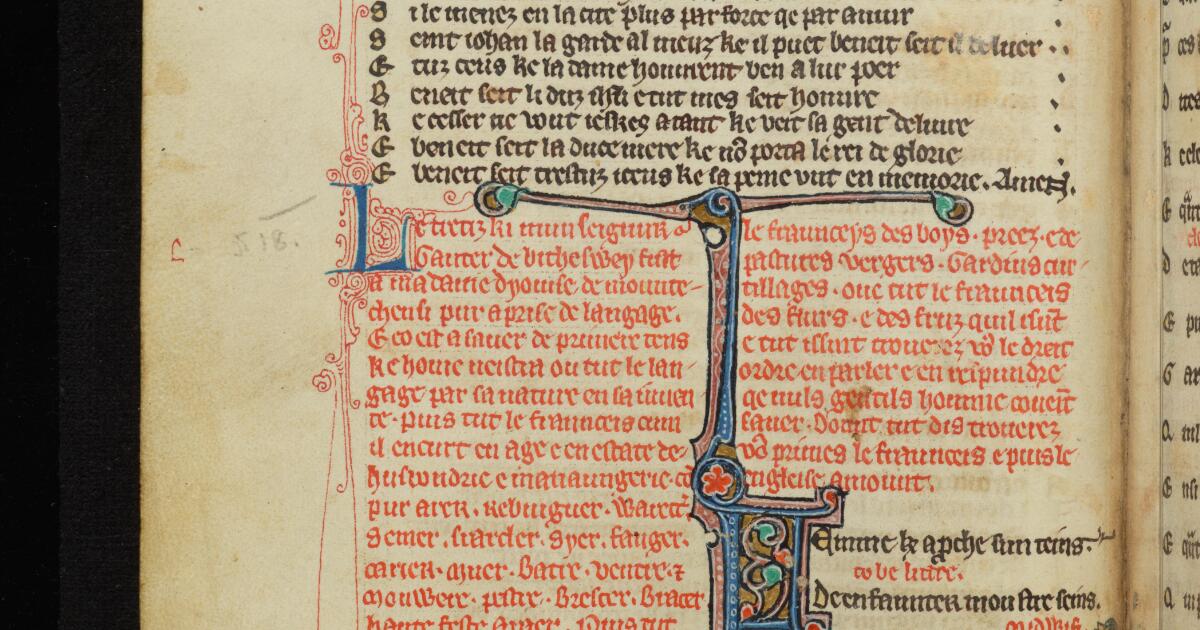 S i le menez en la cite plus par force qe par amur
S eint iohan la garde al meuz ke il puet beneit seit il
E tuz ceus ke la dame honurent ben a lur poer
B eneit seit li duz e tut mes seit honure
K e cesser ne vout ieskes a taunt ke veit sa gent delivre
E beneit seit la duce mere ke porta le rei de glorie
E beneit seit trestuz iceus ke sa peine unt en memorie. Amen.
Le tretiz ki mun seignur
Gauter de bitheswey fist
a ma dame dyonise de mounte-
chensi pur aprise de langage.
E co est a saver de primere tens
ke home neistra ou tut le lan-
gage par sa nature en sa iuven
te. Puis tut le franceis cum
il encurt en age e en estate de
husbondrie e manaungerie.
pur arer. Rebinguer.
Semer. sarcler. syer. fauger.
carier. muer. Batre. ventre ⁊
Mouwere. pestre. Brescer. Bracer
haute feste araer. Puis tut
le fraunceys des boys. preez. e de
pastures vergers. Gardins cur-
tillages. oue tut le fraunceis
des flurs. e des fruz quil i sunt
e tut issint troverez le dreit
ordre en parler e en respundre
qe nuls gentils homme coveit
saver. Dount tut dis troverez
primes le franceis e puis le
engleise amount.
Femme ke aprche sun teins.
to be litre.
De enfaunter moustre seins.
midwif